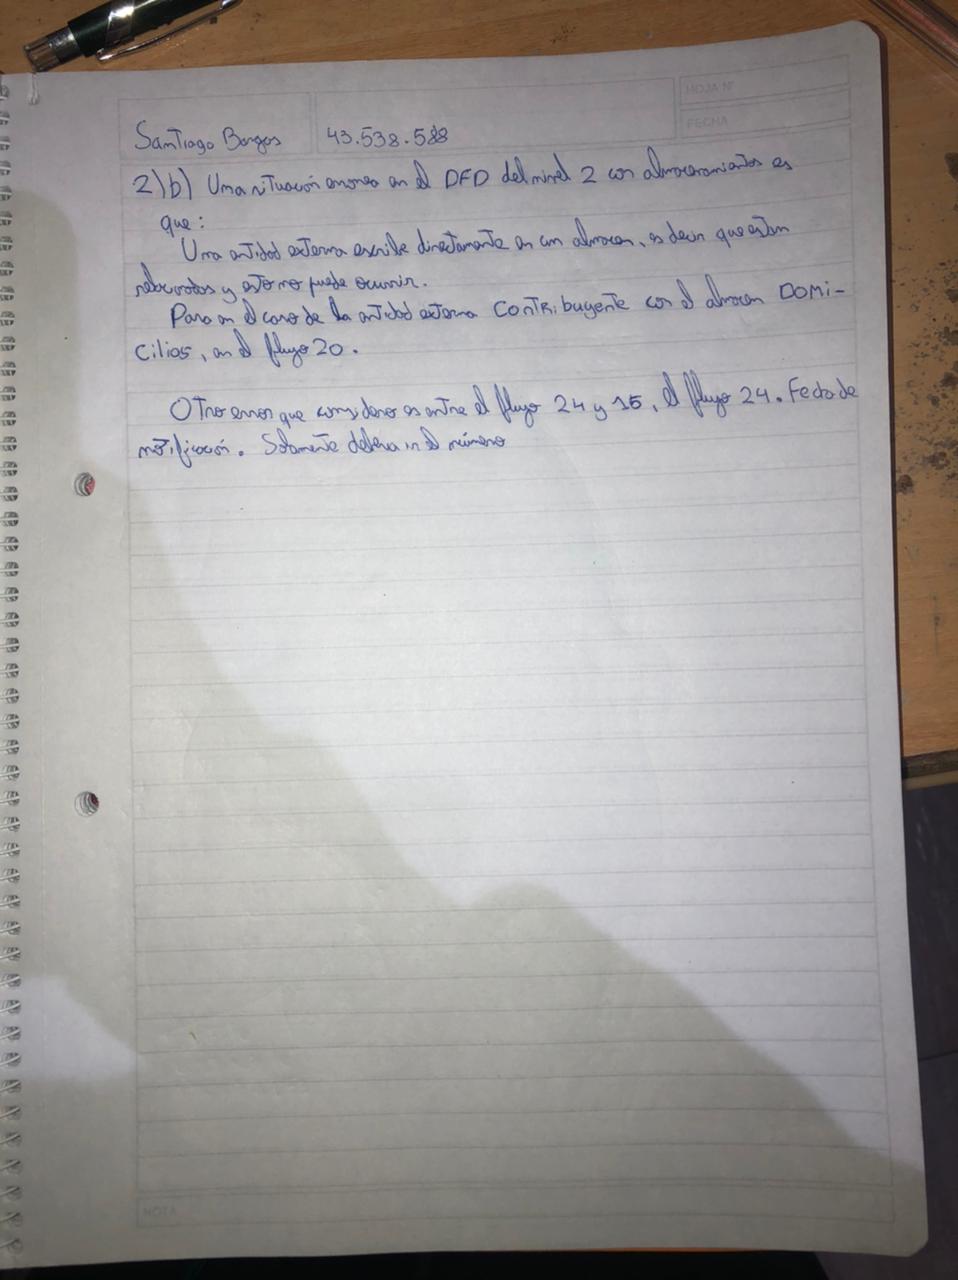 HOJA N°
FECHA
Santiago Borges 43.538.588
2)b) Una situación erronea en el DFD del nivel 2 con almacenamientos es
que:
Una entidad externa escribe directamente en un almacen, es decir que estan
relacionadas y esto no puede ocurrir.
Pasa en el caso de la entidad externa Contribuyente con el almacen DOMi-
Cilios, en el flujo 20.
Otro error que considero es entre el flujo 24 y 15, el flujo 24. Fecha de
notificación. Solamente deberia ir el número
NOTA